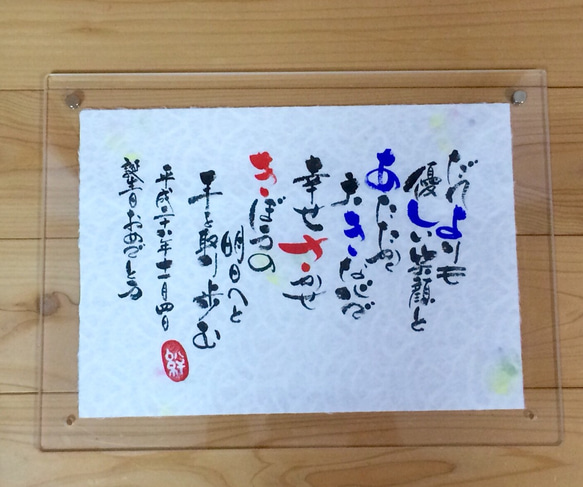 だれよりも
優しい笑顔と
あたたかく
大きな心で
幸せさかせ
きぼうの
明日へと
手を取り歩む
平成二十六年十一月四日
誕生日おめでとう